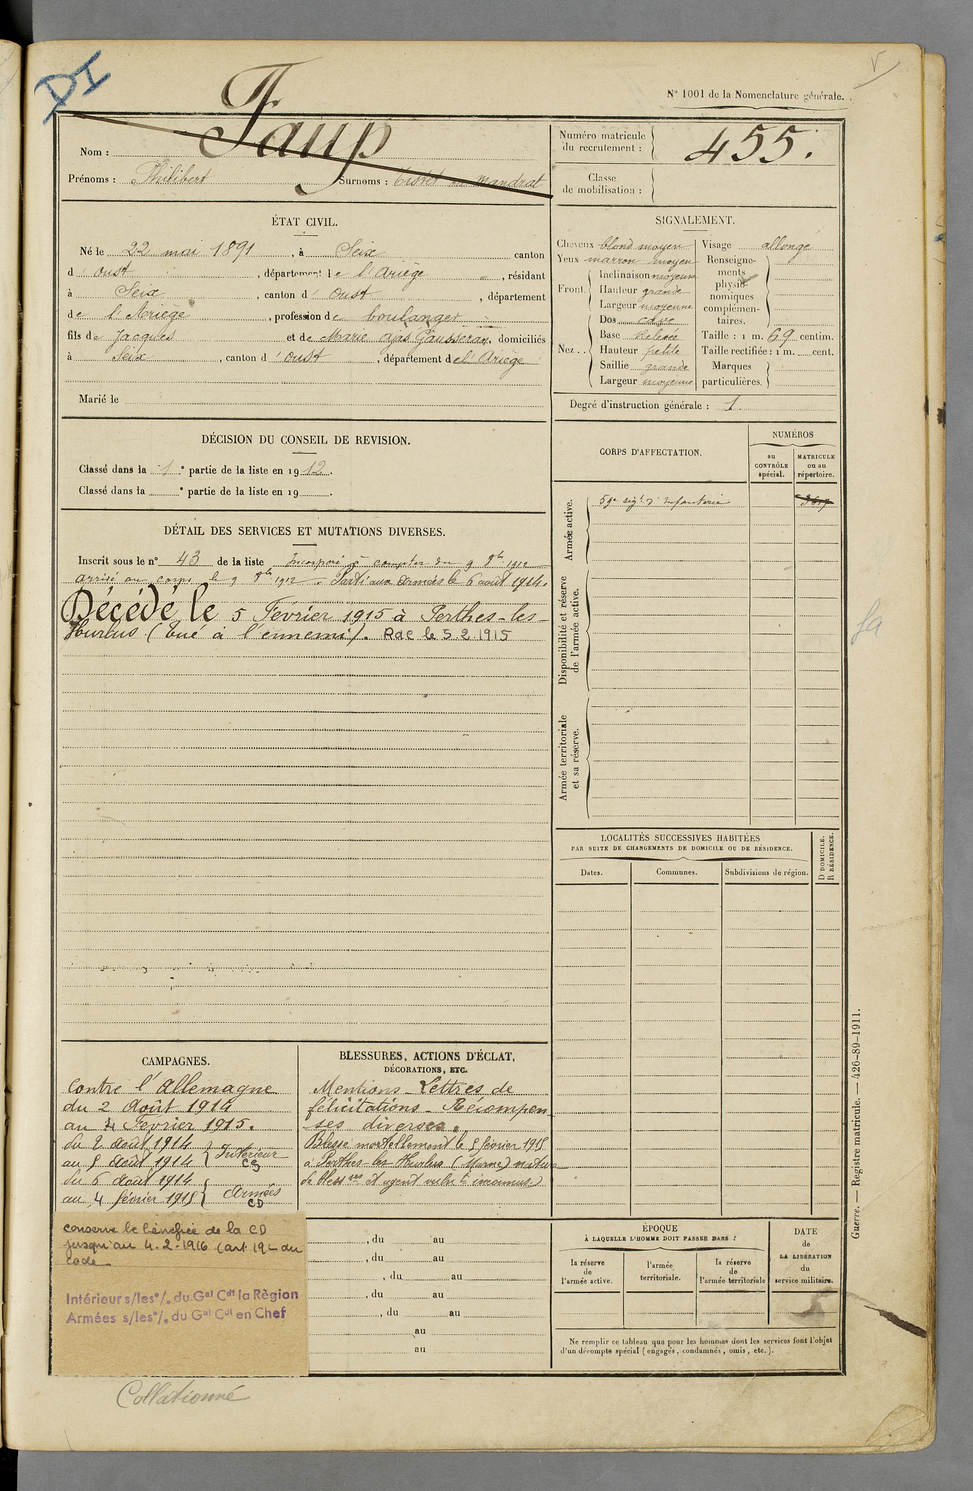 DI
N° 1001 de la Nomenclature générale.
Nom : Faup
Prénoms : Philibert Surnoms : mandrat
Numéro matricule du recrutement : 455.
Classe de mobilisation :
ÉTAT CIVIL.
Né le 22 mai 1891, à Seix canton
d'Oust, département de l'Ariège, résidant
à Seix, canton d'Oust, département
de l'Ariège, profession de boulanger
fils de Jacques et de Marie Gausseran, domiciliés
à Seix, canton d'Oust, département de l'Ariège
Marié le
SIGNALEMENT.
Cheveux blond moyen
Yeux marron moyen
Front. Inclinaison moyenne
Hauteur grande
Largeur moyenne
Nez. Dos
Base relevée
Hauteur petite
Saillie grande
Largeur moyenne
Visage allongé
Renseignements physionomiques complémentaires.
Taille : 1 m. 69 centim.
Taille rectifiée : 1 m. cent.
Marques particulières.
Degré d'instruction générale : 1
DÉCISION DU CONSEIL DE REVISION.
Classé dans la 1e partie de la liste en 1912.
Classé dans la e partie de la liste en 19 .
DÉTAIL DES SERVICES ET MUTATIONS DIVERSES.
Inscrit sous le n° 43 de la liste Incorporé à compter du 9 8bre 1912
arrivé au corps le 9 8bre 1912. Parti aux armées le 6 août 1914.
Décédé le 5 Février 1915 à Perthes-les-
Hurlus (tué à l'ennemi). Rdc le 5.2.1915
CORPS D'AFFECTATION.
NUMÉROS
au CONTRÔLE spécial.
MATRICULE ou au répertoire.
Armée active.
59e rég.t d'Infanterie
Disponibilité et réserve de l'armée active.
Armée territoriale et sa réserve.
LOCALITÉS SUCCESSIVES HABITÉES
PAR SUITE DE CHANGEMENTS DE DOMICILE OU DE RÉSIDENCE.
Dates.
Communes.
Subdivisions de région.
D DOMICILE.
R RÉSIDENCE.
CAMPAGNES.
Contre l'Allemagne
du 2 Août 1914
au 4 Février 1915.
du 2 août 1914
au 5 août 1914 } Intérieur CS
du 6 août 1914
au 4 février 1915 } Armées CD
BLESSURES, ACTIONS D'ÉCLAT,
DÉCORATIONS, ETC.
Mentions - Lettres de
félicitations - Récompen-
ses diverses.
Blessé mortellement le 5 février 1915
à Perthes les Hurlus (Marne) nature
de bless.res et agent vulnt inconnus.
conserve le bénéfice de la CD
jusqu'au 4-2-1916 (art 19 du
code
Intérieur s/les°/. du Gal Cdt la Région
Armées s/les°/. du Gal Cdt en Chef
, du au
, du au
, du au
, du au
, du au
au
au
ÉPOQUE
À LAQUELLE L'HOMME DOIT PASSER DANS :
la réserve de l'armée active.
l'armée territoriale.
la réserve de l'armée territoriale
DATE de LA LIBÉRATION du service militaire.
Ne remplir ce tableau que pour les hommes dont les services font l'objet
d'un décompte spécial (engagés, condamnés, omis, etc.).
Guerre. — Registre matricule. — 426-89-1911.
Collationné